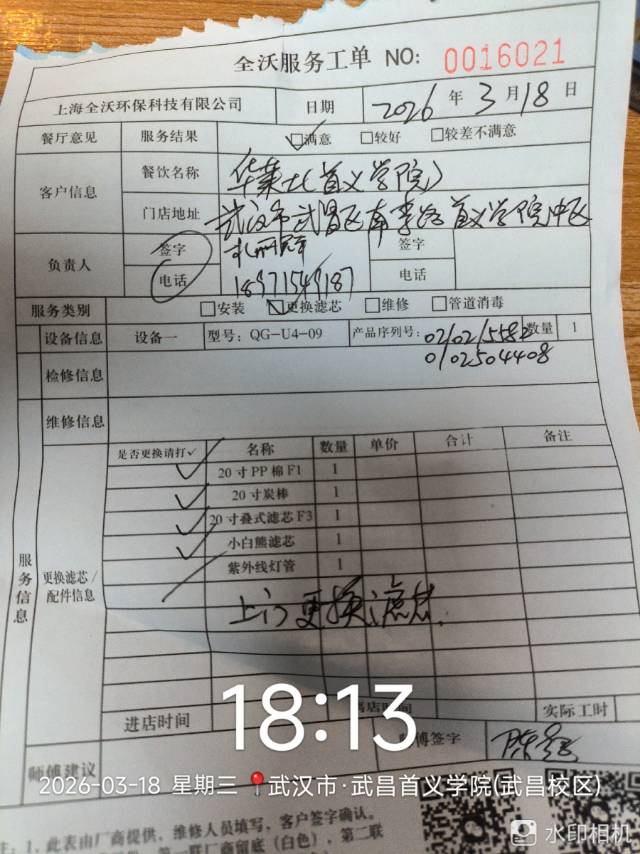 全沃服务工单 NO: 0016021
上海全沃环保科技有限公司 日期 2026 年 3 月 18 日
餐厅意见 服务结果 满意 较好 较差不满意
客户信息 餐饮名称 华莱士(首义学院)
门店地址 武汉市武昌区南李路首义学院中区
负责人 签字 签字
电话 18971549187 电话
服务类别 安装 更换滤芯 维修 管道消毒
设备信息 设备一 型号: QG-U4-09 产品序列号: 数量 1
0102504408
检修信息
维修信息
服务信息
更换滤芯/配件信息
是否更换请打✓ 名称 数量 单价 合计 备注
✓ 20寸PP棉F1 1
✓ 20寸炭棒 1
✓ 20寸叠式滤芯F3 1
✓ 小白熊滤芯 1
紫外线灯管 1
上门更换滤芯.
进店时间 店时间 实际工时
18:13
师傅建议 师傅签字
2026-03-18 星期三 武汉市·武昌首义学院(武昌校区)
注: 1、此表由厂商提供, 维修人员填写, 客户签字确认。
第一联厂商留底(白色), 第二联
水印相机